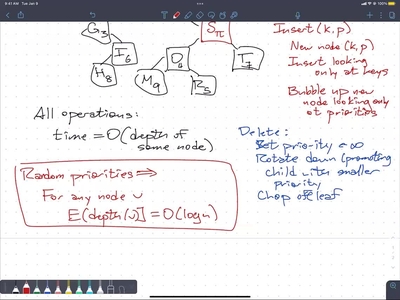 9:41 AM Tue Jan 8
G3
Sπ
I6
H8
D0
I7
M9
R5
Insert (k, p)
New node (k, p)
Insert looking
only at keys
Bubble up new
node looking only
at priorities
All operations:
time = O(depth of
some node)
Delete:
Set priority ← ∞
Rotate down (promoting
child with smaller
priority
Chop off leaf
Random priorities ⟹
For any node υ
E[depth(υ)] = O(log n)